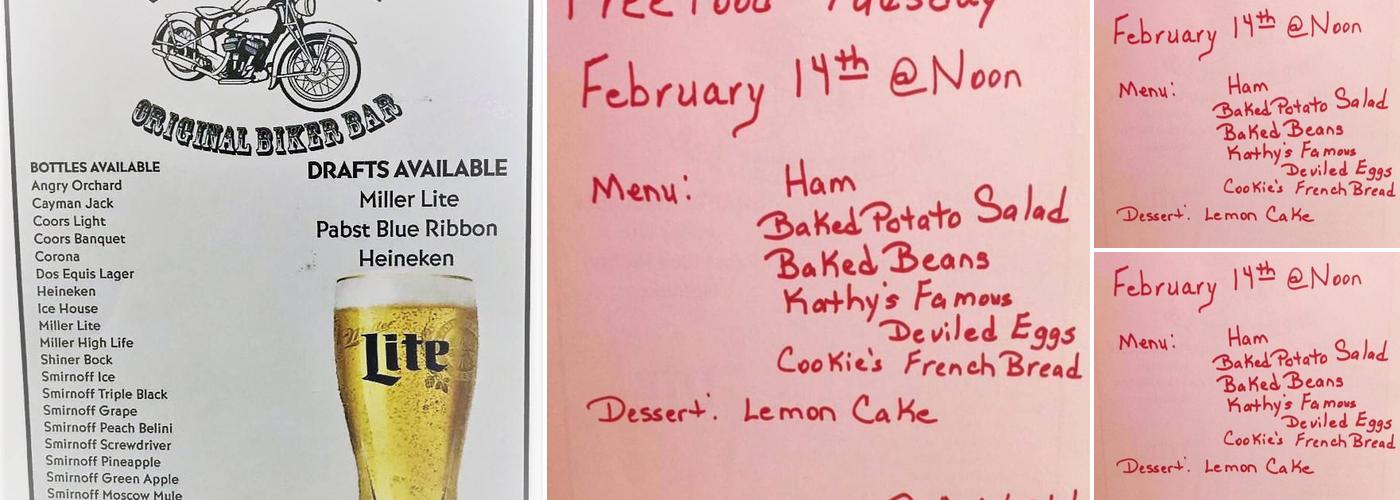 ORIGINAL BIKER BAR
BOTTLES AVAILABLE
Angry Orchard
Cayman Jack
Coors Light
Coors Banquet
Corona
Dos Equis Lager
Heineken
Ice House
Miller Lite
Miller High Life
Shiner Bock
Smirnoff Ice
Smirnoff Triple Black
Smirnoff Grape
Smirnoff Peach Belini
Smirnoff Screwdriver
Smirnoff Pineapple
Smirnoff Green Apple
Smirnoff Moscow Mule
DRAFTS AVAILABLE
Miller Lite
Pabst Blue Ribbon
Heineken
Miller
Lite
Free Food Tuesday
February 14th @ Noon
Menu: Ham
Baked Potato Salad
Baked Beans
Kathy's Famous
Deviled Eggs
Cookie's French Bread
Dessert: Lemon Cake
February 14th @ Noon
Menu: Ham
Baked Potato Salad
Baked Beans
Kathy's Famous
Deviled Eggs
Cookie's French Bread
Dessert: Lemon Cake
February 14th @ Noon
Menu: Ham
Baked Potato Salad
Baked Beans
Kathy's Famous
Deviled Eggs
Cookie's French Bread
Dessert: Lemon Cake